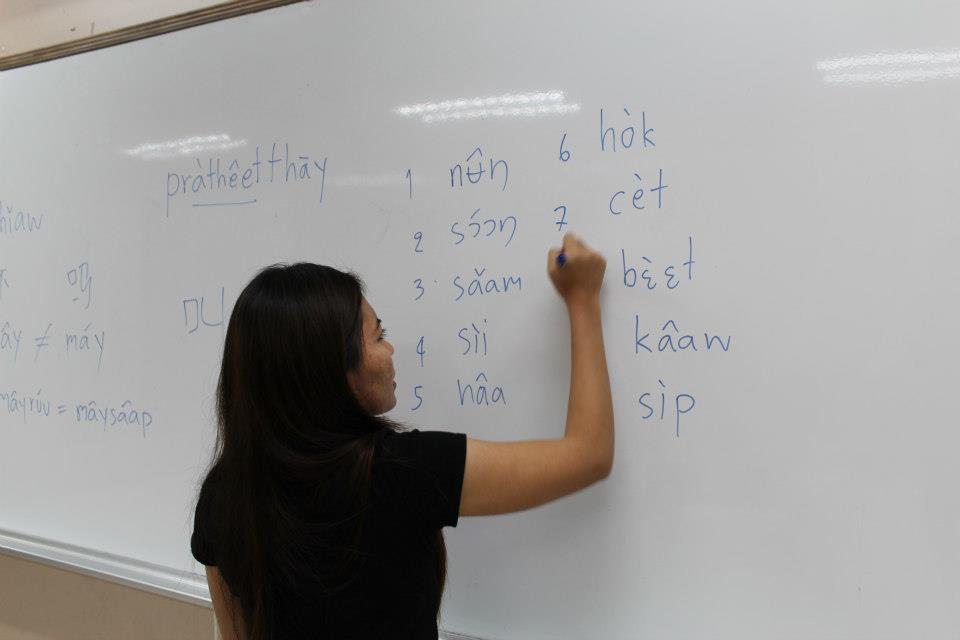 pràthêetthāy
máy
mâyrúu = mâysâap
1 nʉ̂ŋ
2 sɔ́ɔŋ
3 sǎam
4 sìi
5 hâa
6 hòk
7 cèt
bɛ̀ɛt
kâaw
sìp